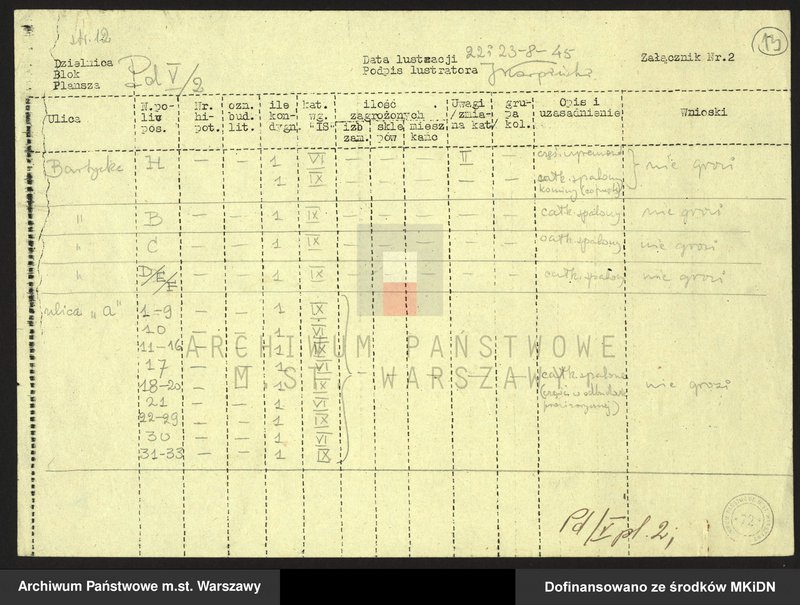 str. 12
13
Dzielnica
Blok
Plansza
Pd V/2
Data lustracji 22 i 23-8-45
Podpis lustratora
Załącznik Nr.2
Ulica
N.po-
lic
pos.
Nr.
hi-
pot.
ozn.
bud.
lit.
ile
kon-
dygn.
kat.
wg.
"IS"
ilość
zagrożonych
izb
zam.
skle
pów
miesz
kańc
Uwagi
/zmia-
na kat/
gru-
pa
kol.
Opis i
uzasadnienie
Wnioski
H — — 1 VI — — — II — nie grozi
1 IX — — — — — całk. spalony
" B — — 1 IX — — — — — całk. spalony nie grozi
" C — — 1 IX — — — — — całk. spalony nie grozi
" D/E/F — — 1 IX — — — — — całk. spalony nie grozi
ulica „a” 1-9 — — 1 IX
10 — — 1 VI
11-16 — — 1 IX
17 — — 1 VI — — — — — całk. spalone nie grozi
18-20 — — 1 IX
21 — — 1 VI
22-29 — — 1 IX
30 — — 1 VI
31-33 — — 1 IX
ARCHIWUM PAŃSTWOWE
M.ST. WARSZAWY
Pd/V pl. 2;
72
Archiwum Państwowe m.st. Warszawy
Dofinansowano ze środków MKiDN